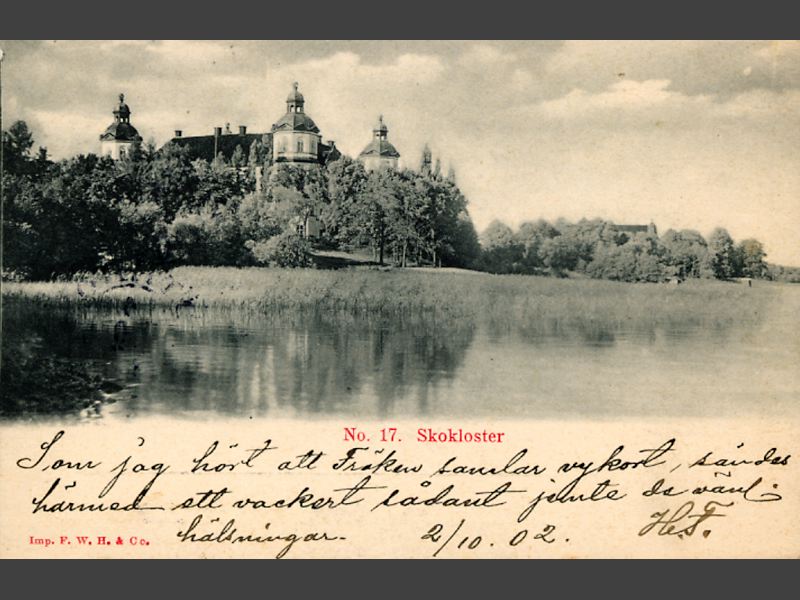 No. 17. Skokloster
Som jag hört att Fröken samlar vykort, sändes
härmed ett vackert sådant jemte de vänl:
hälsningar. 2/10. 02. H.F.
Imp. F. W. H. & Co.